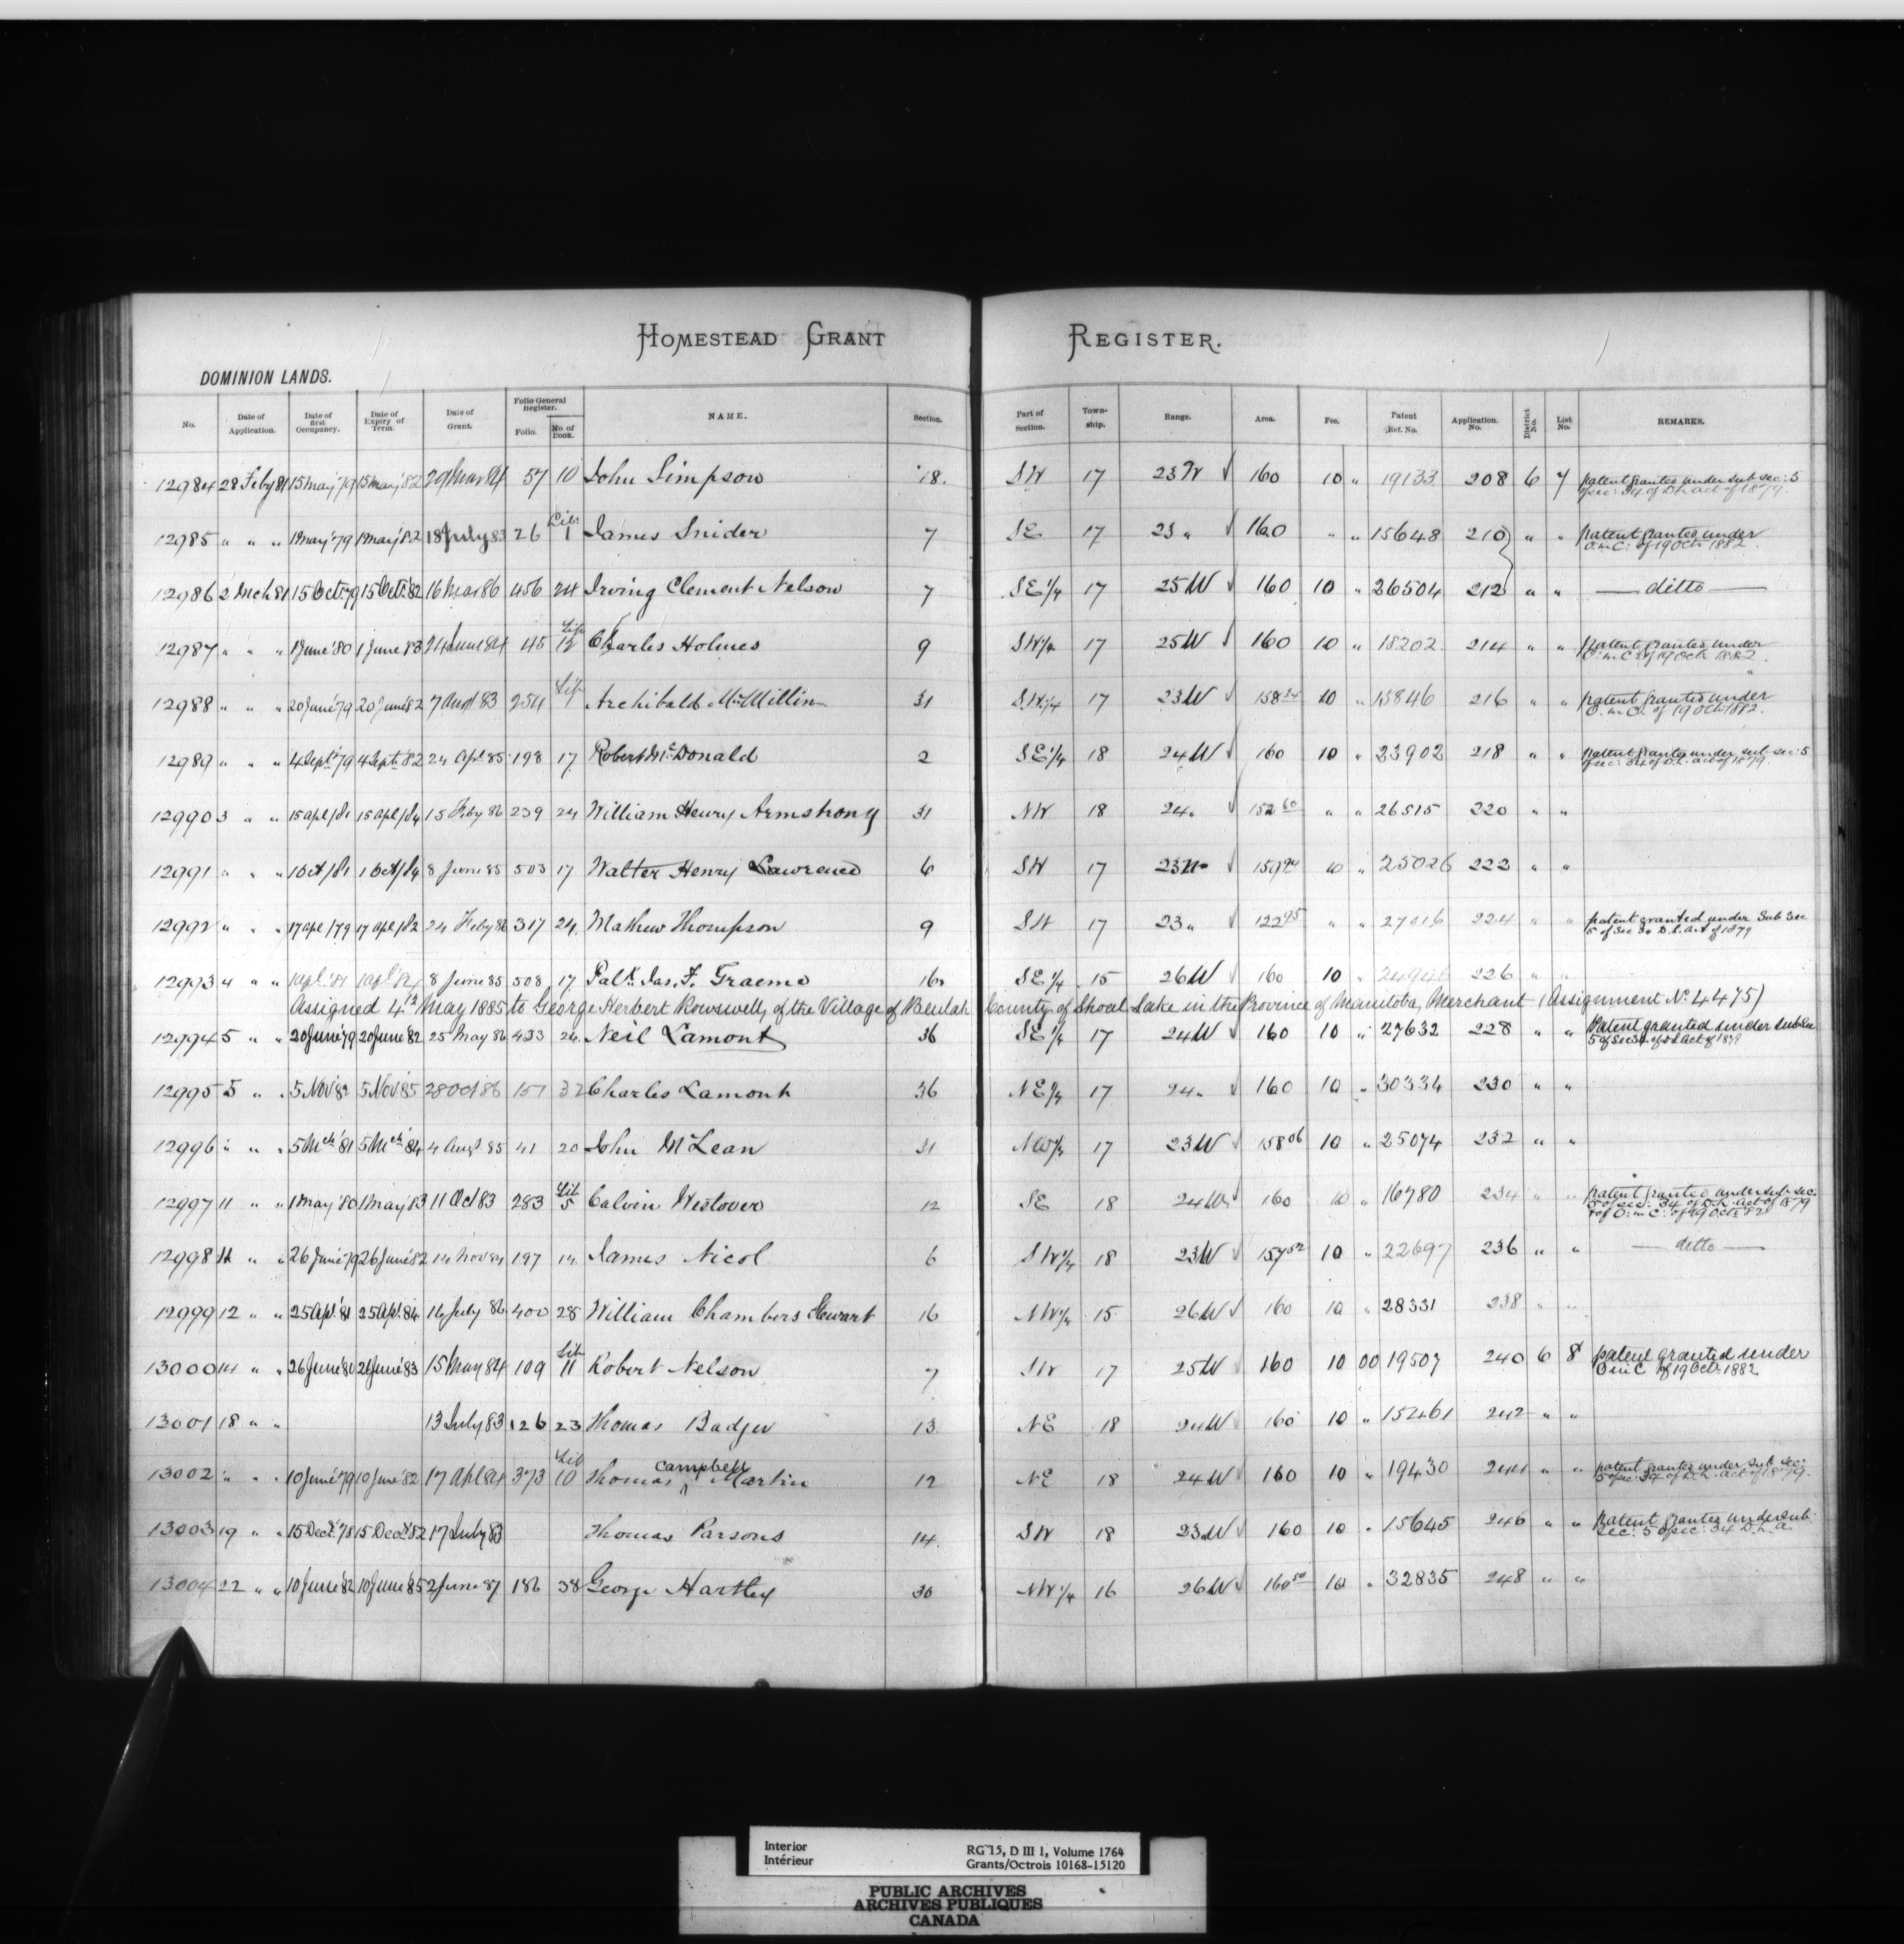 HOMESTEAD GRANT REGISTER.
DOMINION LANDS.
No. Date of Application. Date of first Occupancy. Date of Expiry of Term. Date of Grant. Folio General Register. Folio. No of Book. NAME. Section. Part of Section. Township. Range. Area. Fee. Patent Ref. No. Application. No. District No. List No. REMARKS.
12984 28 Feby 81 15 may '79 15 may '82 29 Mar 84 57 10 John Simpson 18. SW 17 23 W √ 160 10 " 19133 208 6 7 patent granted under sub sec: 5
of sec: 34 of D.L. act of 1879.
12985 " " " 1 May '79 1 May '82 18 July 83 26 Lib: 1 James Snider 7 SE 17 23 " √ 160 " " 15648 210 " " patent granted under
O. in C: of 19 Oct: 1882.
12986 2 Mch 81 15 Oct: 79 15 Oct: 82 16 Mar 86 456 24 Irving Clement Nelson 7 SE 1/4 17 25 W √ 160 10 " 26504 212 " " — ditto —
12987 " " " 1 June '80 1 June 83 24 June 84 45 Lib 12 Charles Holmes 9 SW 1/4 17 25 W √ 160 10 " 18202 214 " " patent granted under
O. in C of 19 Oct. 1882.
12988 " " " 20 June '79 20 June '82 7 Augt 83 254 Lib 1 Archibald McMillin 31 SW 1/4 17 23 W √ 158 34 10 " 15846 216 " " patent granted under
O. in C. of 19 Oct: 1882.
12989 " " " 4 Sept '79 4 Sept '82 24 Apl 85 198 17 Robert McDonald 2 SE 1/4 18 24 W √ 160 10 " 23902 218 " " patent granted under sub: sec: 5
of sec: 34 of D.L. act of 1879.
12990 3 " " 15 apl/81 15 apl/84 15 Feby 86 239 24 William Henry Armstrong 31 NW 18 24 " √ 152 60 " " 26515 220 " "
12991 " " " 1 Oct/81 1 Oct/84 8 June 85 503 17 Walter Henry Lawrence 6 SW 17 23 W √ 159 94 10 " 25026 222 " "
12992 " " " 17 apl/79 17 apl/82 24 Feby 86 317 24 Mathew Thompson 9 SW 17 23 " √ 122 95 " " 27016 224 " " patent granted under Sub Sec
5 of Sec 34 D.L. Act of 1879
12993 4 " " 1 apl '81 1 apl '84 8 June 85 508 17 Palk. Jas. F. Graeme 16 SE 1/4 15 26 W √ 160 10 " 226 " "
Assigned 4th May 1885 to George Herbert Rowswell, of the Village of Beulah County of Shoal Lake in the Province of Manitoba, Merchant (Assignment No. 4475)
12994 5 " " 20 June '79 20 June '82 25 May 86 433 26 Neil Lamont 36 SE 1/4 17 24 W √ 160 10 " 27632 228 " " Patent granted under sub sec
5 of Sec 34 of D L Act of 1879
12995 5 " " 5 Nov '82 5 Nov '85 28 Oct 86 157 32 Charles Lamont 36 NE 1/4 17 24 " √ 160 10 " 30334 230 " "
12996 " " " 5 Mch '81 5 Mch '84 4 Augt 85 41 20 John McLean 31 NW 1/4 17 23 W √ 158 06 10 " 25074 232 " "
12997 11 " " 1 May '80 1 May '83 11 Oct 83 283 Lib 5 Calvin Westover 12 SE 18 24 W √ 160 10 " 16780 234 " " patent granted under sub: sec:
5 of sec: 34 of D.L. act of 1879
& of O: in C: of 19 Oct: 82
12998 11 " " 26 June '79 26 June 82 14 Nov 84 197 14 James Nicol 6 SW 1/4 18 23 W √ 157 52 10 " 22697 236 " " — ditto —
12999 12 " " 25 Apl. 81 25 Apl. 84 16 July 86 400 28 William Chambers Stewart 16 NW 1/4 15 26 W √ 160 10 " 28331 238 " "
13000 14 " " 26 June '80 26 June '83 15 May 84 109 Lib 11 Robert Nelson 7 SW 17 25 W 160 10 00 19507 240 6 8 patent granted under
O in C of 19 Oct: 1882
13001 18 " " 13 July 83 126 23 Thomas Badger 13 NE 18 24 W 160 10 " 15461 242 " "
13002 " " " 10 June '79 10 June '82 17 Apl 84 373 Lib 10 Thomas Campbell Martin 12 NE 18 24 W √ 160 10 " 19430 244 " " patent granted under sub sec:
5 of sec: 34 of D.L. act of 1879.
13003 19 " " 15 Dec: '78 15 Dec: '82 17 July 83 Thomas Parsons 14 SW 18 23 W √ 160 10 " 15645 246 " " patent granted under sub:
sec: 5 of sec: 34 D. L. a.
13004 22 " " 10 June '82 10 June '85 2 June 87 186 38 George Hartley 30 NW 1/4 16 26 W √ 160 50 10 " 32835 248 " "
Interior
Intérieur
RG 15, D III 1, Volume 1764
Grants/Octrois 10168-15120
PUBLIC ARCHIVES
ARCHIVES PUBLIQUES
CANADA